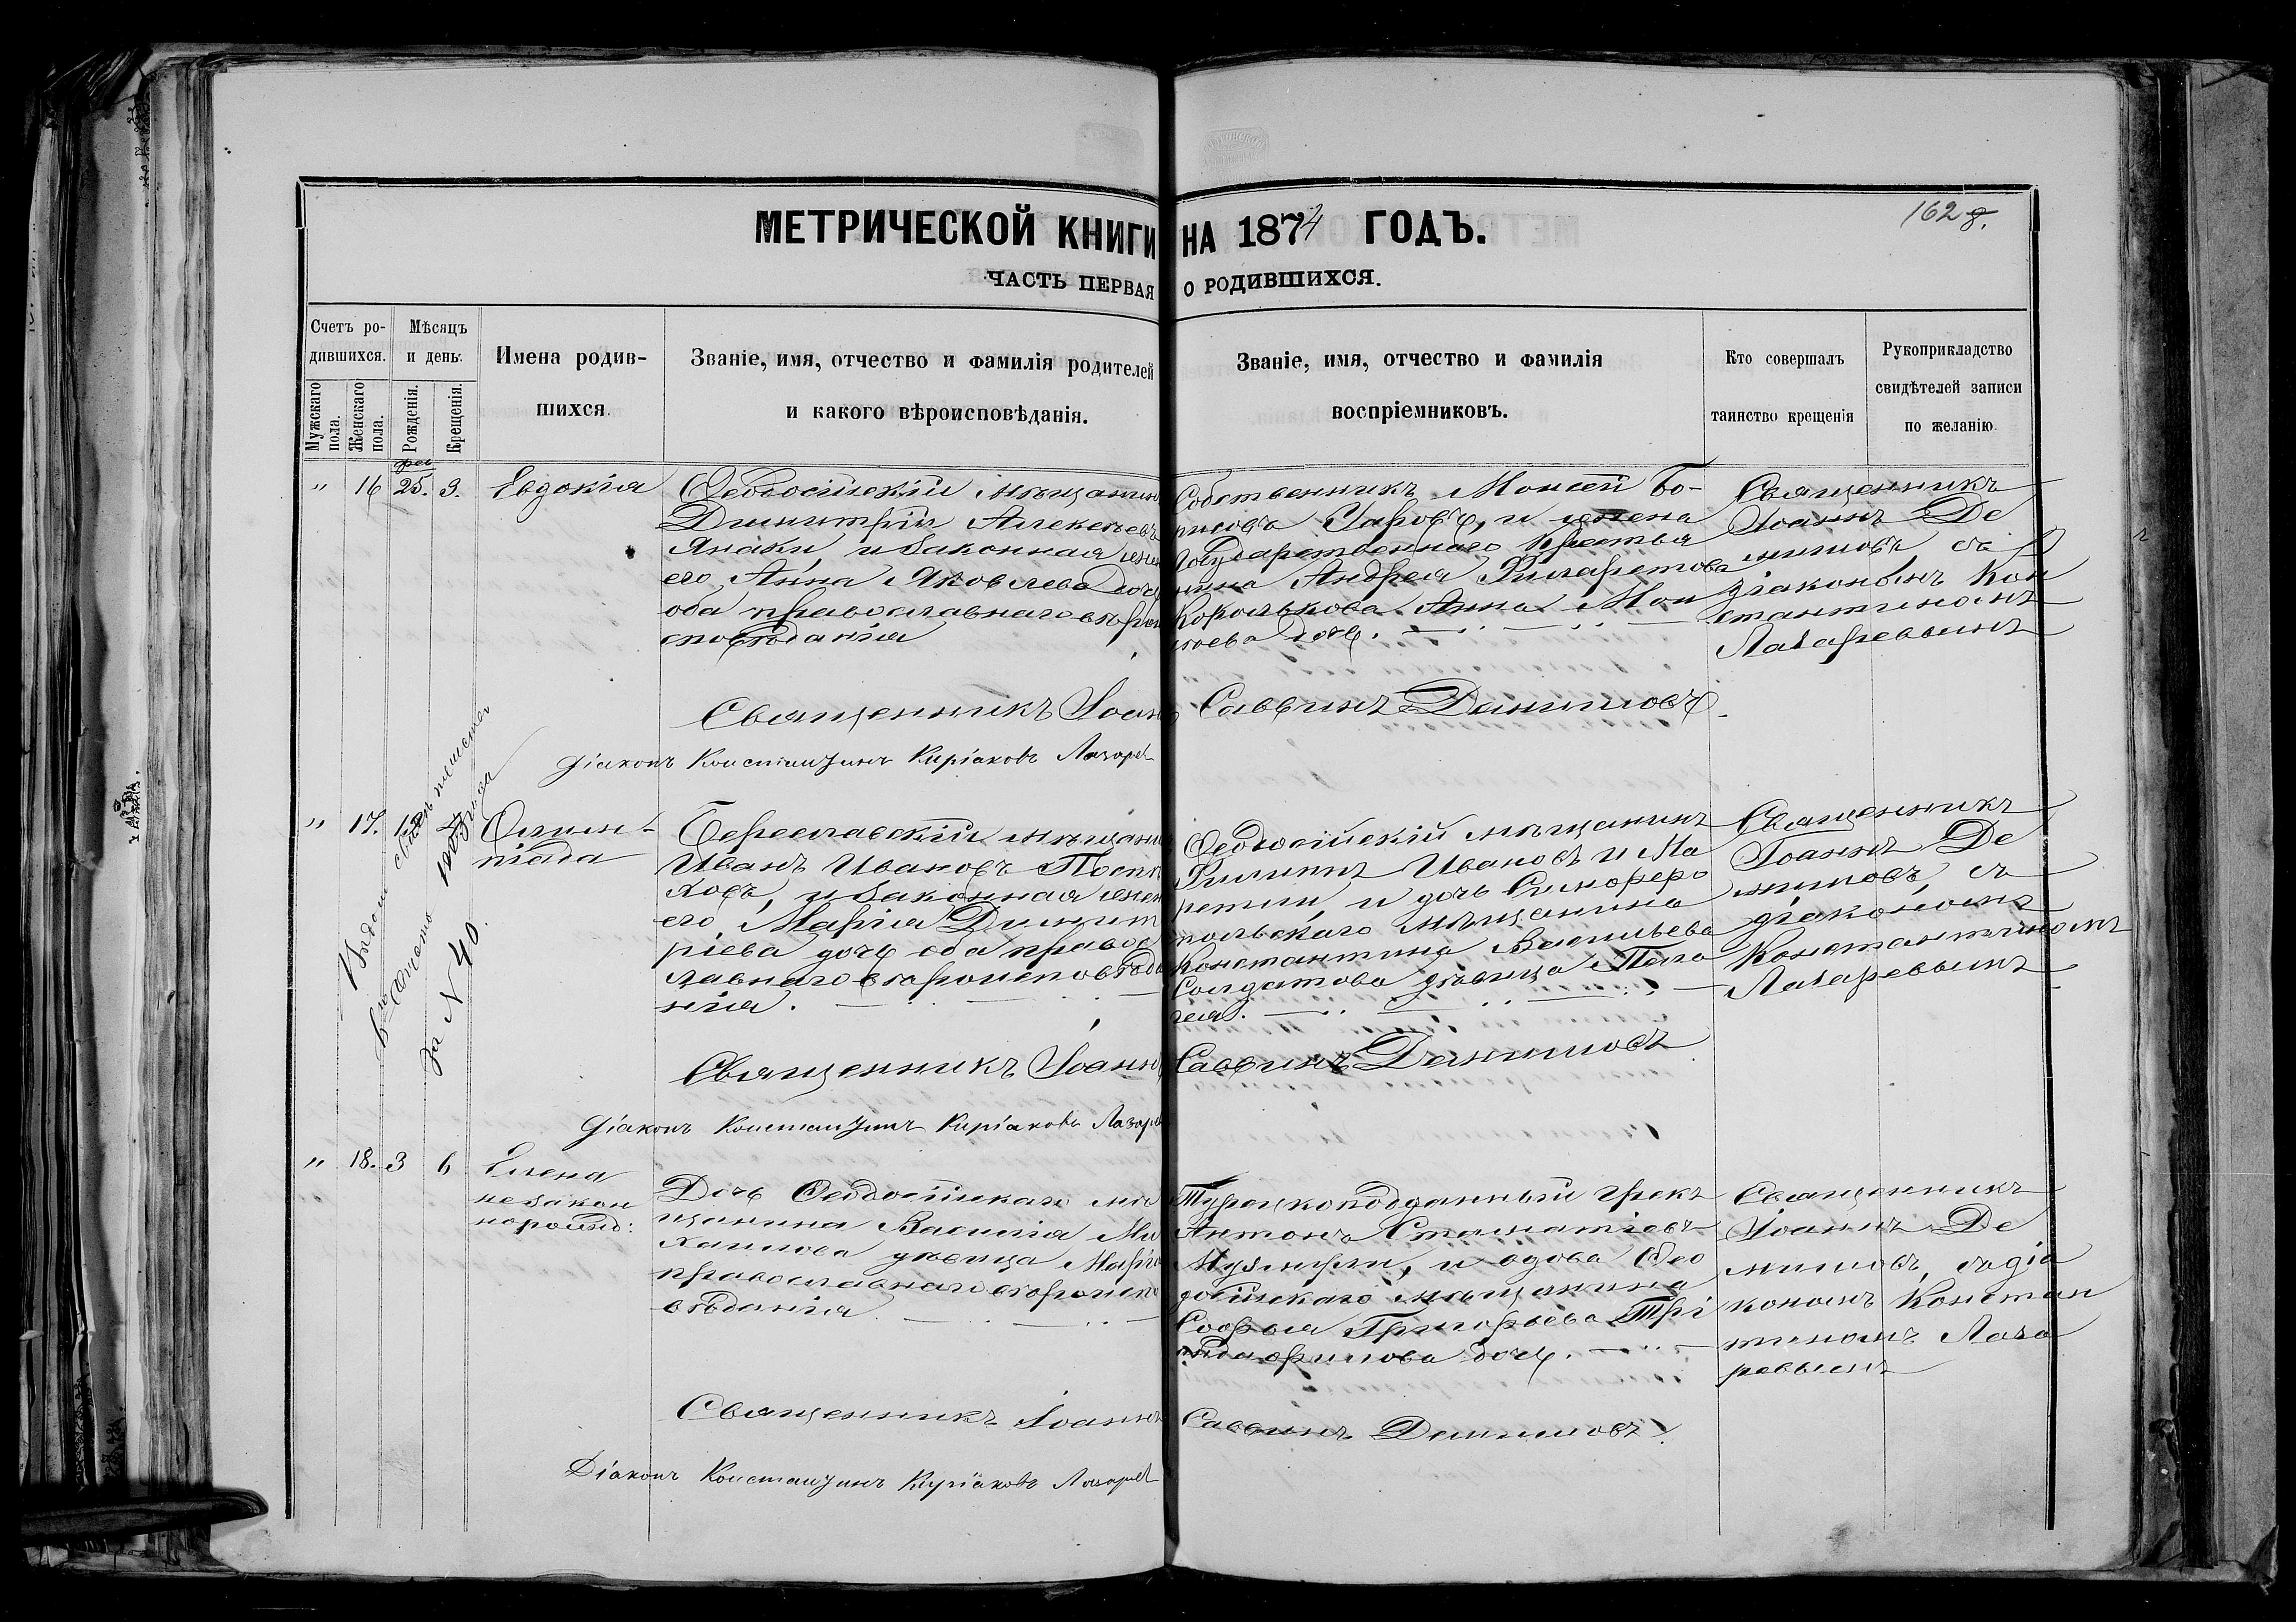 162
МЕТРИЧЕСКОЙ КНИГИ НА 1874 ГОДЪ.
ЧАСТЬ ПЕРВАЯ О РОДИВШИХСЯ.
Счетъ ро-
дившихся.
Мужскаго пола.
Женскаго пола.
Мѣсяцъ
и день.
Рожденія.
Крещенія.
Имена родив-
шихся.
Званіе, имя, отчество и фамилія родителей
и какого вѣроисповѣданія.
Званіе, имя, отчество и фамилія
воспріемниковъ.
Кто совершалъ
таинство крещенія
Рукоприкладство
свидѣтелей записи
по желанію.
" 16 фев 25. 9.
Евдокія
Ѳеодосійскій мѣщанин
Димитрій Алексѣевъ
Янаки, и законная жен
его Анна Яковлева дочь
оба православнаго вѣрои
сповѣданія
Собственникъ Моисей Бо-
рисовъ и жена
Государственнаго Крестья
нина Андрея Филаретова
Королькова Анна Мои
сеева дочь.
Священникъ
Іоаннъ Де
ниловъ съ
діакономъ Кон
стантиномъ
Лазаревымъ
Священникъ Іоаннъ Саввинъ Даниловъ.
Діаконъ Константинъ Киріаковъ Лазарев
" 17.
Олим-
піада
Береславскій мѣщанин
Иванъ Ивановъ
ховъ, и законная жен
его Марія Димит
ріева дочь оба правос
лавнаго вѣроисповѣда
нія.
Ѳеодосійскій мѣщанинъ
Филиппъ Ивановъ
и дочь Симферо
польскаго мѣщанина
Константина Васильева
Солдатова дѣвица Пела
гея.
Священникъ
Іоаннъ Де
ниловъ, съ
діакономъ
Константиномъ
Лазаревымъ
за N 40.
Священникъ Іоаннъ Саввинъ Даниловъ
Діаконъ Константинъ Киріаковъ Лазарев
" 18. 3 6
Елена
незакон
норожд:
Дочь Ѳеодосійскаго мѣ
щанина Василія Ми
хаилова дѣвица Марія
православнаго вѣроиспо
вѣданія
Турецкоподданный Грекъ
Антонъ Стаматіевъ
и вдова Ѳео
досійскаго мѣщанина
Софья Григорьева Трі
андафилова дочь.
Священникъ
Іоаннъ Де
ниловъ, съ діа
кономъ Констан
тиномъ Лаза
ревымъ
Священникъ Іоаннъ Саввинъ Даниловъ.
Діаконъ Константинъ Киріаковъ Лазарев